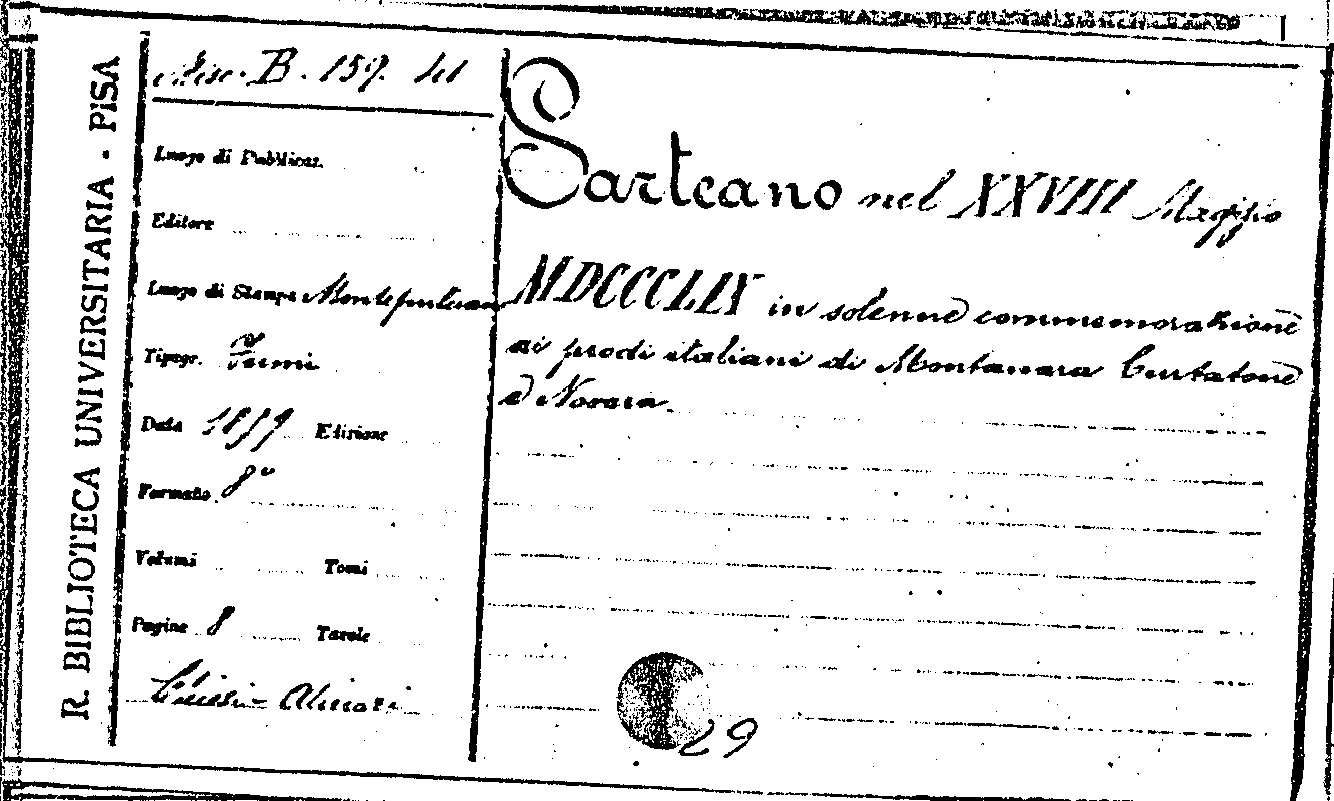 R. BIBLIOTECA UNIVERSITARIA - PISA
Misc. B. 159.
Luogo di Pubblicaz.
Editore
Luogo di Stampa Montepulciano
Tipogr. Fumi
Data 1859 Edizione
Formato 8°
Volumi Tomi
Pagine 8 Tavole
Sarteano nel XXVIII Maggio
MDCCCLIX in solenne commemorazione
ai prodi italiani di Montanara Curtatone
e Novara.
29